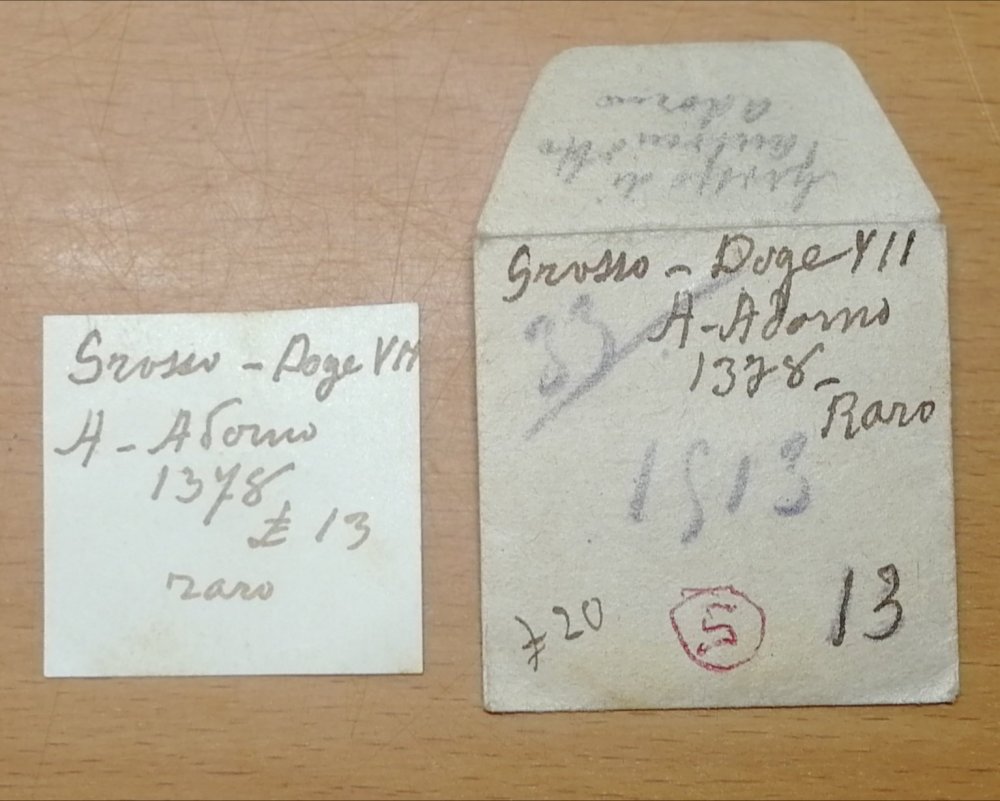 Grosso - Doge VII
A - Adorno
1378
£ 13
raro
Adorno
Grosso - Doge VII
33
A - Adorno
1378 -
Raro
1513
£ 20
5
13